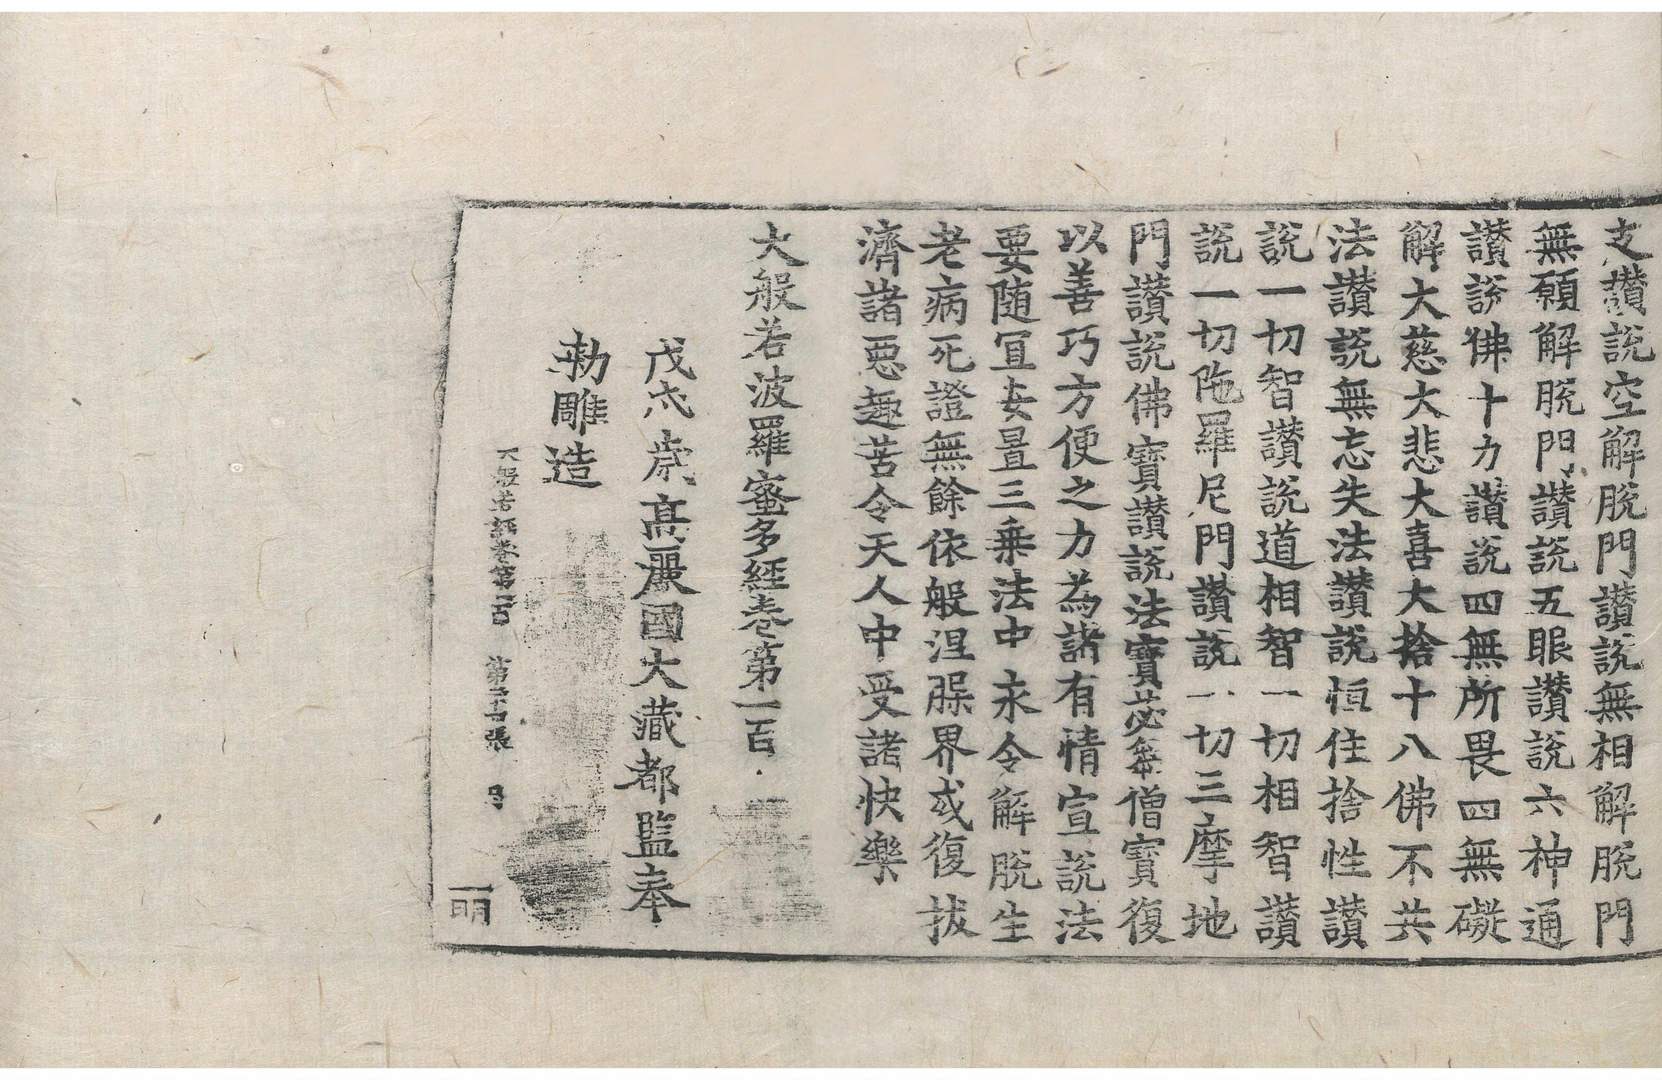 支讚說空解脫門讚說無相解脫門
無願解脫門讚說五眼讚說六神通
讚說佛十力讚說四無所畏四無礙
解大慈大悲大喜大捨十八佛不共
法讚說無忘失法讚說恒住捨性讚
說一切智讚說道相智一切相智讚
說一切陁羅尼門讚說一切三摩地
門讚說佛寶讚說法寶苾芻僧寶復
以善巧方便之力為諸有情宣說法
要随冝安置三乗法中永令解脫生
老病死證無餘依般涅槃界或復拔
濟諸惡趣苦令天人中受諸快樂
大般若波羅蜜多經卷第一百
戊戌歲髙麗國大藏都監奉
勅雕造
大般若經卷第一百 第 張 号
一明